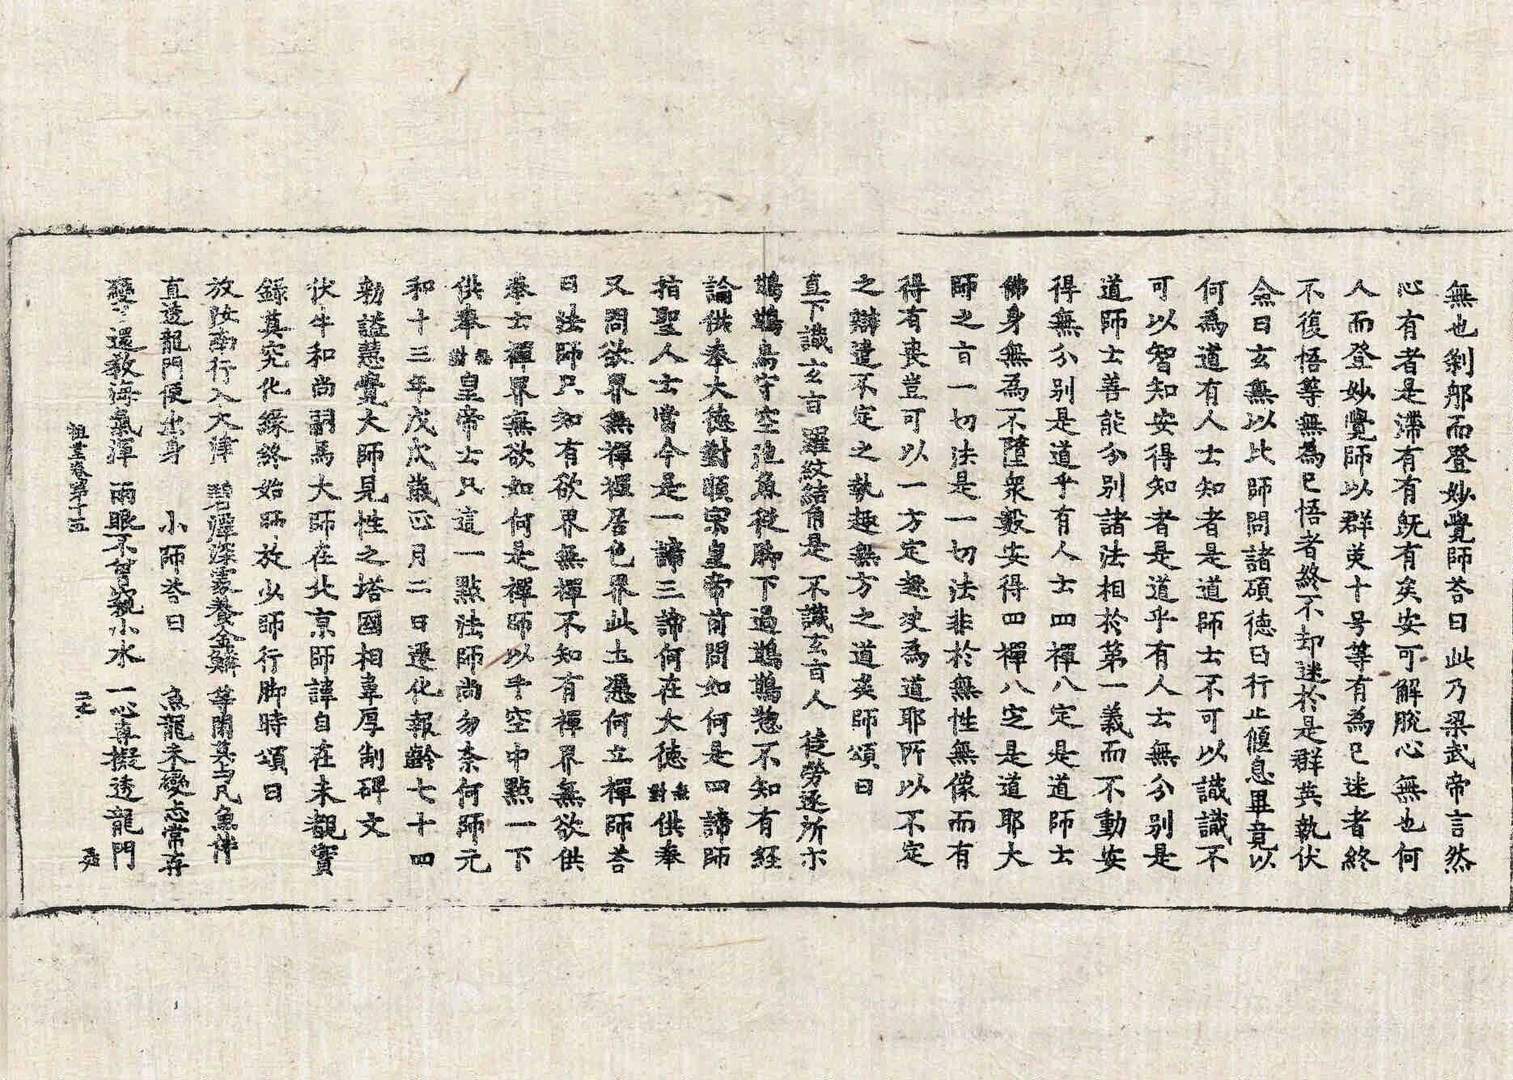 無也剎那而登妙覺師荅曰此乃梁武帝言然
心有者是滯有有既有矣安可解脫心無也何
人而登妙覺師以群英十号等有為已迷者終
不復悟等無為已悟者終不却迷於是群英執伏
僉曰玄無以比師問諸碩德曰行止偃息畢竟以
何為道有人士知者是道師士不可以識識不
可以智知安得知者是道乎有人士無分別是
道師士善能分別諸法相於第一義而不動安
得無分別是道乎有人士四禪八定是道師士
佛身無為不墮衆數安得四禪八定是道耶大
師之言一切法是一切法非於無性無像而有
得有喪豈可以一方定趣決為道耶所以不定
之辯遣不定之執趣無方之道矣師頌曰
直下識玄言 羅紋結角是 不識玄言人 徒勞逐所示
鵝鵝鳥守空池魚從脚下過鵝鵝惣不知有經
論供奉大德對順宗皇帝前問如何是四諦師
指聖人士當今是一諦三諦何在大德無對供奉
又問欲界無禪禪居色界此土憑何立禪師荅
曰法師只知有欲界無禪不知有禪界無欲供
奉士禪界無欲如何是禪師以手空中點一下
供奉無對皇帝士只這一點法師尚勿柰何師元
和十三年戊戌歲正月二日遷化報齡七十四
勑謚慧覺大師見性之塔國相韋厚制碑文
伏牛和尚嗣馬大師在北京師諱自在未覩實
錄莫究化緣終始師放少師行脚時頌曰
放汝南行入大津 碧潭深處養金鱗 等閑莫与凡魚伴
直透龍門便出身 小師荅曰 魚龍未變志常存
變々還教海氣渾 兩眼不曾窺小水 一心專擬透龍門
祖堂卷第十五